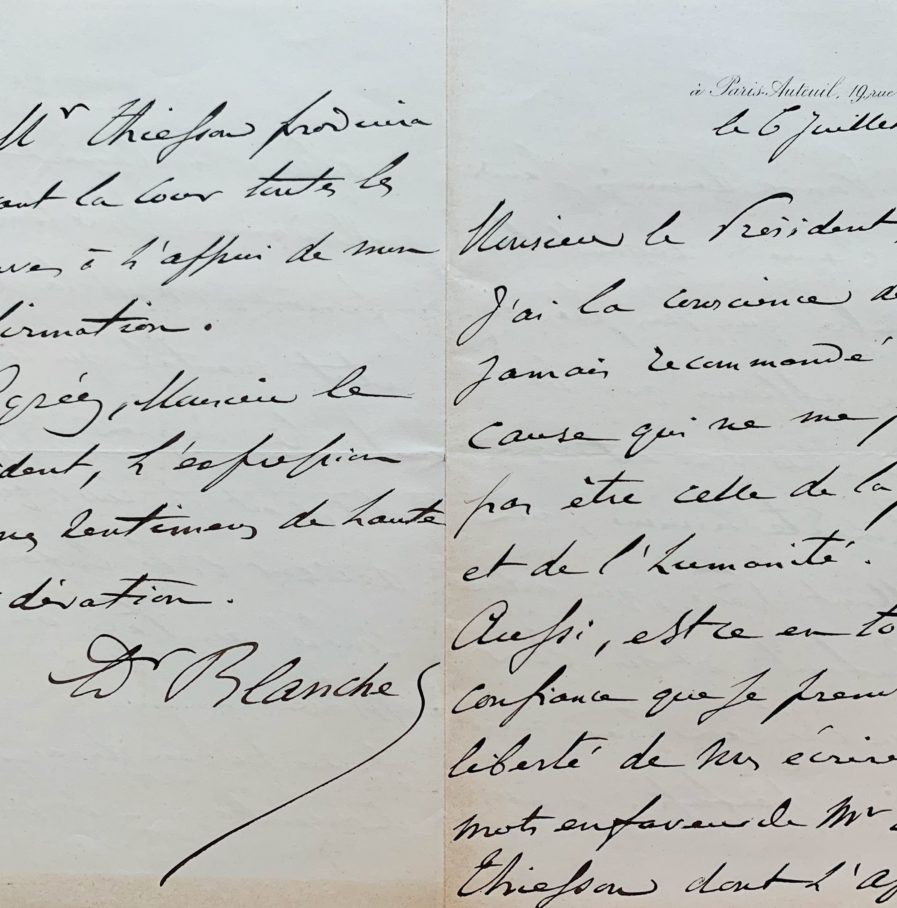 Mr Thiesson produira
ant la Cour toutes les
uves à l'appui de mon
firmation.
Agréez, Monsieur le
ident, l'expression
mes sentimens de haute
dération.
Dr Blanche
à Paris-Auteuil, 19, rue
le 6 Juillet
Monsieur le Président,
J'ai la conscience de
jamais recommandé
cause qui ne me p
pas être celle de la j
et de l'humanité.
Aussi, est-ce en to
confiance que je pren
liberté de vous écrire
mots en faveur de Mr
Thiesson dont l'af